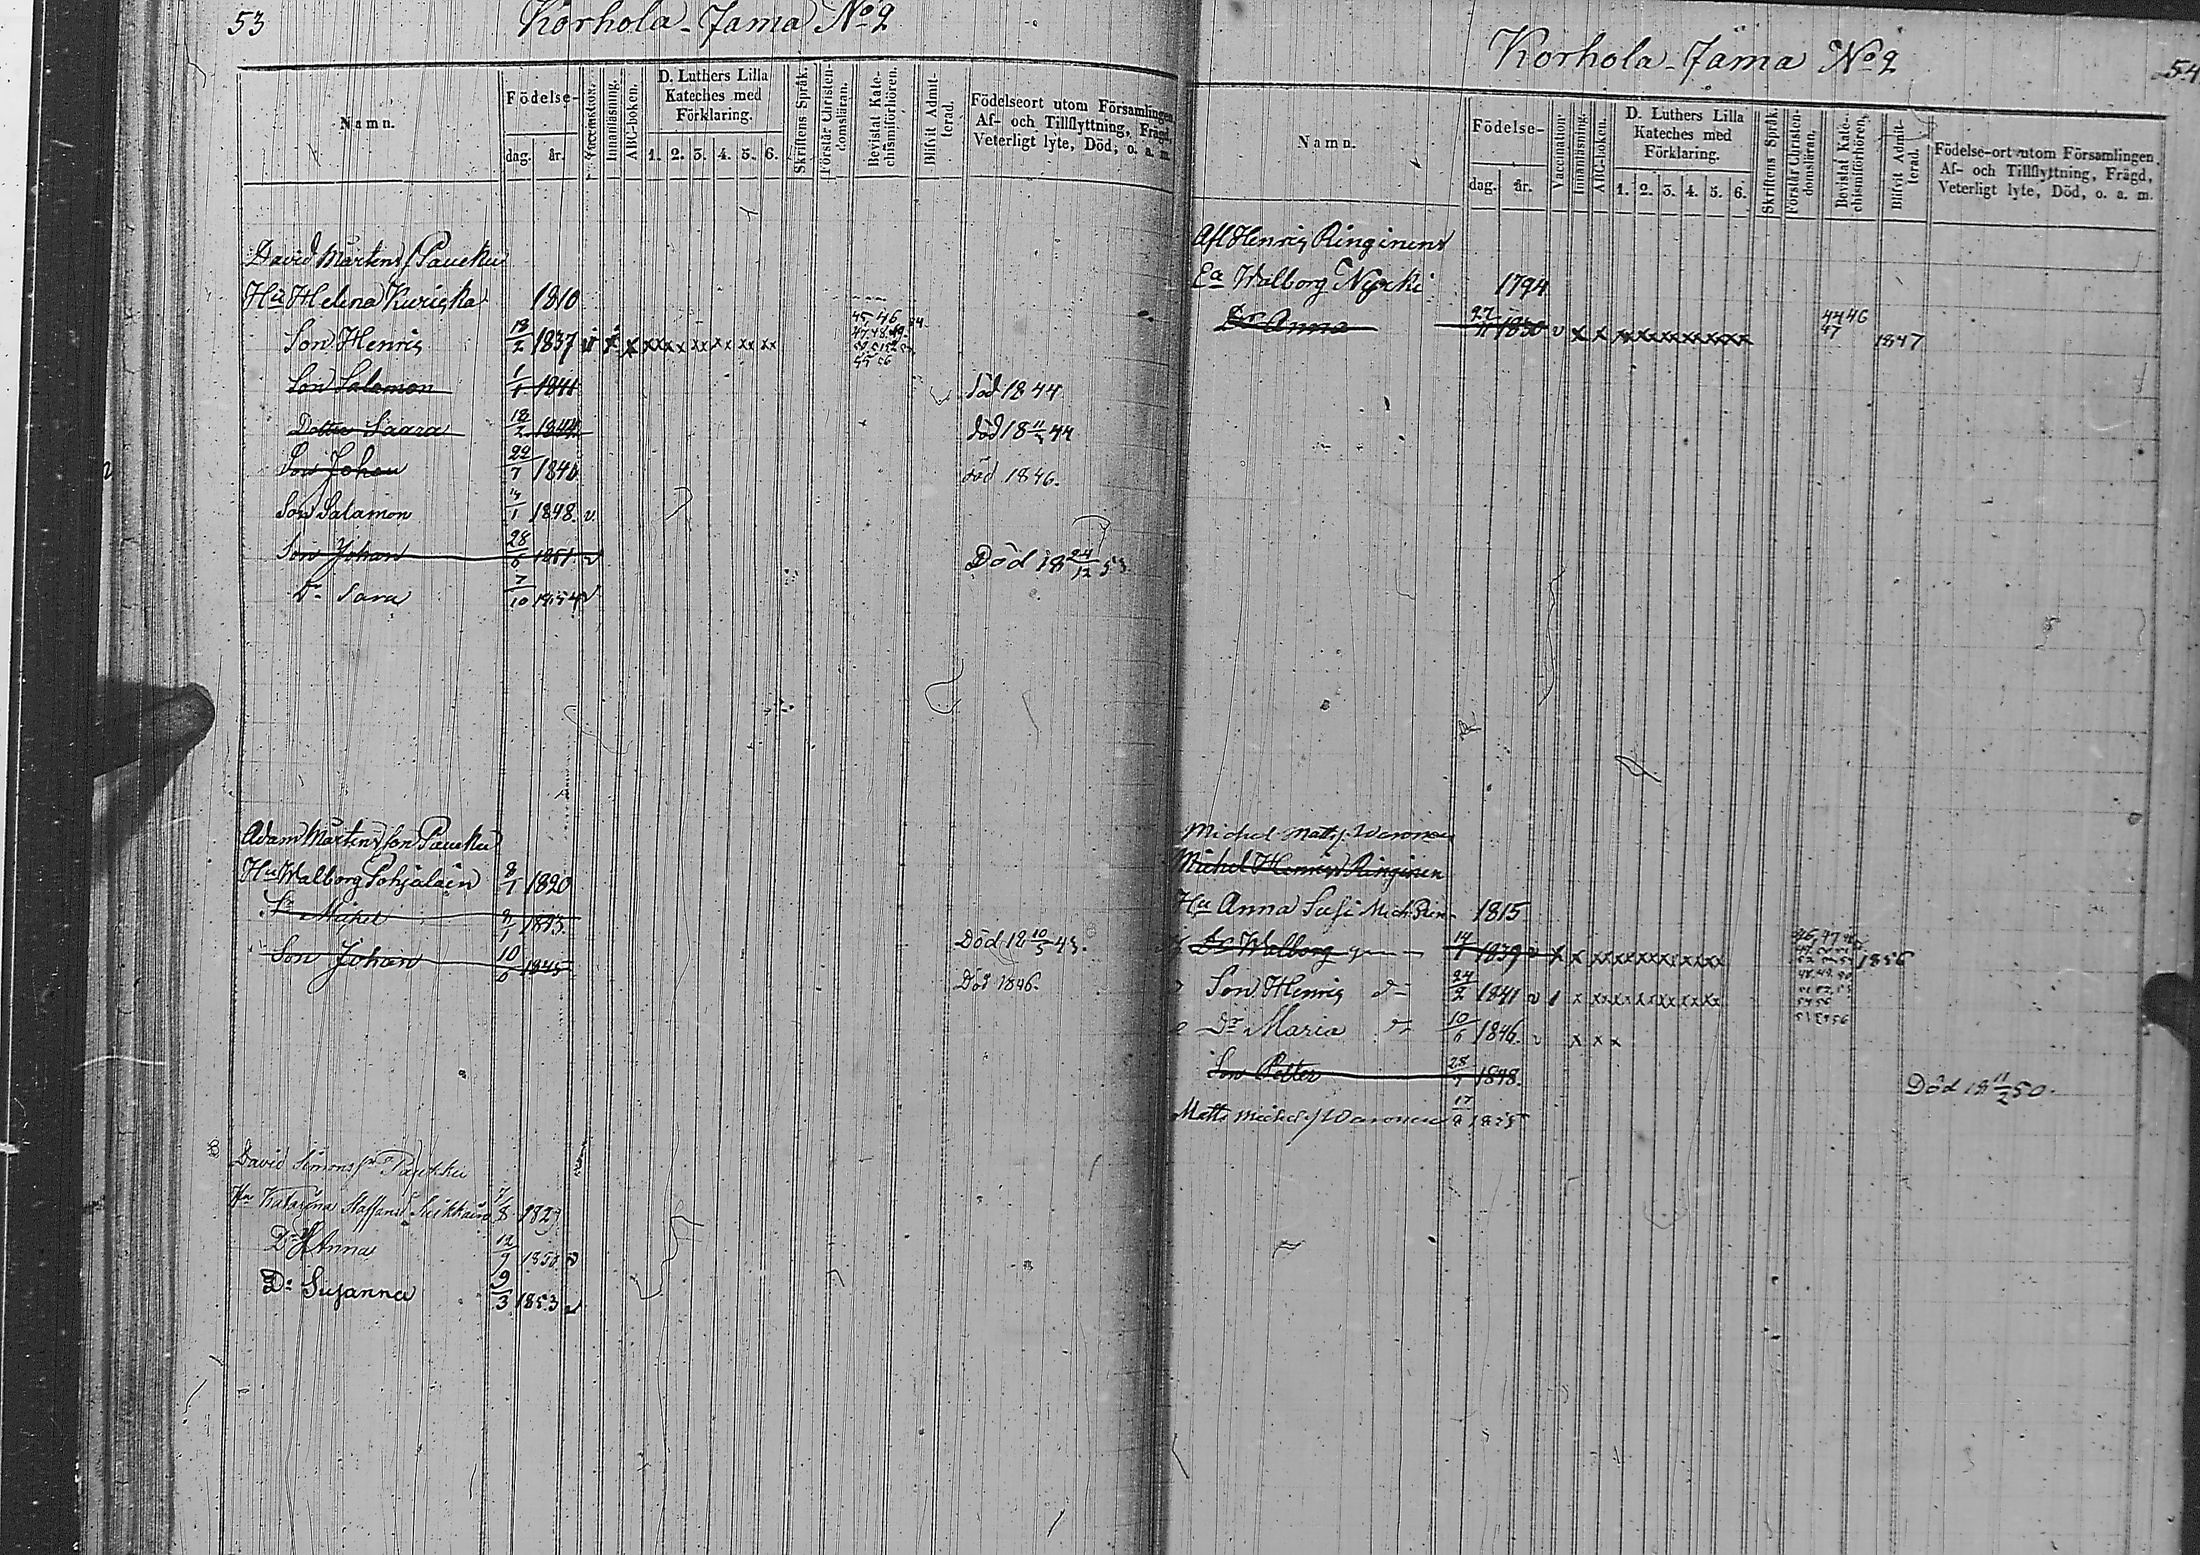 53
Korhola-Jama No 2
Namn.
Födelse-
dag. år.
Vaccination.
Innanläsning.
ABC-boken.
D. Luthers Lilla
Kateches med
Förklaring.
1. 2. 3. 4. 5. 6.
Skriftens Språk.
Förstår Christen-
domsläran.
Bevistat Kate-
chismiförhören.
Blifvit Admit-
terad.
Födelseort utom Församlingen
Af- och Tillflyttning, Frägd,
Veterligt lyte, Död, o. a. m.
David Mårtens s. Paukku
Hu Helena Kuriska 1810
Son Henric 18/2 1837 v x x xx xx xx xx xx xx 45 46
Son Salamon 1/1 1841 död 1844
Dotter Saara 18/2 1844 död 18 11/3 44
Son Johan 22/7 1846 död 1846.
Son Salamon 14/1 1848. v.
Son Johan 28/6 1851. v Död 18 24/12 53
Dr Sara 7/10 1854 v
Adam Mårtens son Paukku
Hu Walborg Pohjalain 8/1 1820
Sn Mickel 8/1 1843. Död 18 10/5 43.
Son Johan 10/6 1845 Död 1846.
David Simons son Paukku
Hu Katarina Staffansd. 7/8 1829
Dr Anna 12/9 1850. v
Dr Susanna 9/3 1853 v
Korhola-Jama No 2
54
Namn.
Födelse-
dag. år.
Vaccination
Innanläsning.
ABC-boken.
D. Luthers Lilla
Kateches med
Förklaring.
1. 2. 3. 4. 5. 6.
Skriftens Språk.
Förstår Christen-
domsläran.
Bevistat Kate-
chismiförhören,
Blifvit Admit-
terad.
Födelse-ort utom Församlingen.
Af- och Tillflyttning, Frägd,
Veterligt lyte, Död, o. a. m.
Afl Henric Ringinens
Ea Walborg Nyrki 1794
Dr Anna 27/11 1830 v x x xxxxxxxxxxxx 44 46 47 1847
Michel Matts s. Waronen
Michel Henrics Ringinen
Hu Anna Susi 1815
Dr Walborg 14/1 1839 v x x xxxxxxxxxxxx 1856
Son Henric 24/2 1841 v x xxxxxxxxxxxx
Dr Maria 10/6 1846. v x x x
Son Petter 28/7 1848. Död 18 11/2 50.
Matts Michels s. Waronen 17/9 1855